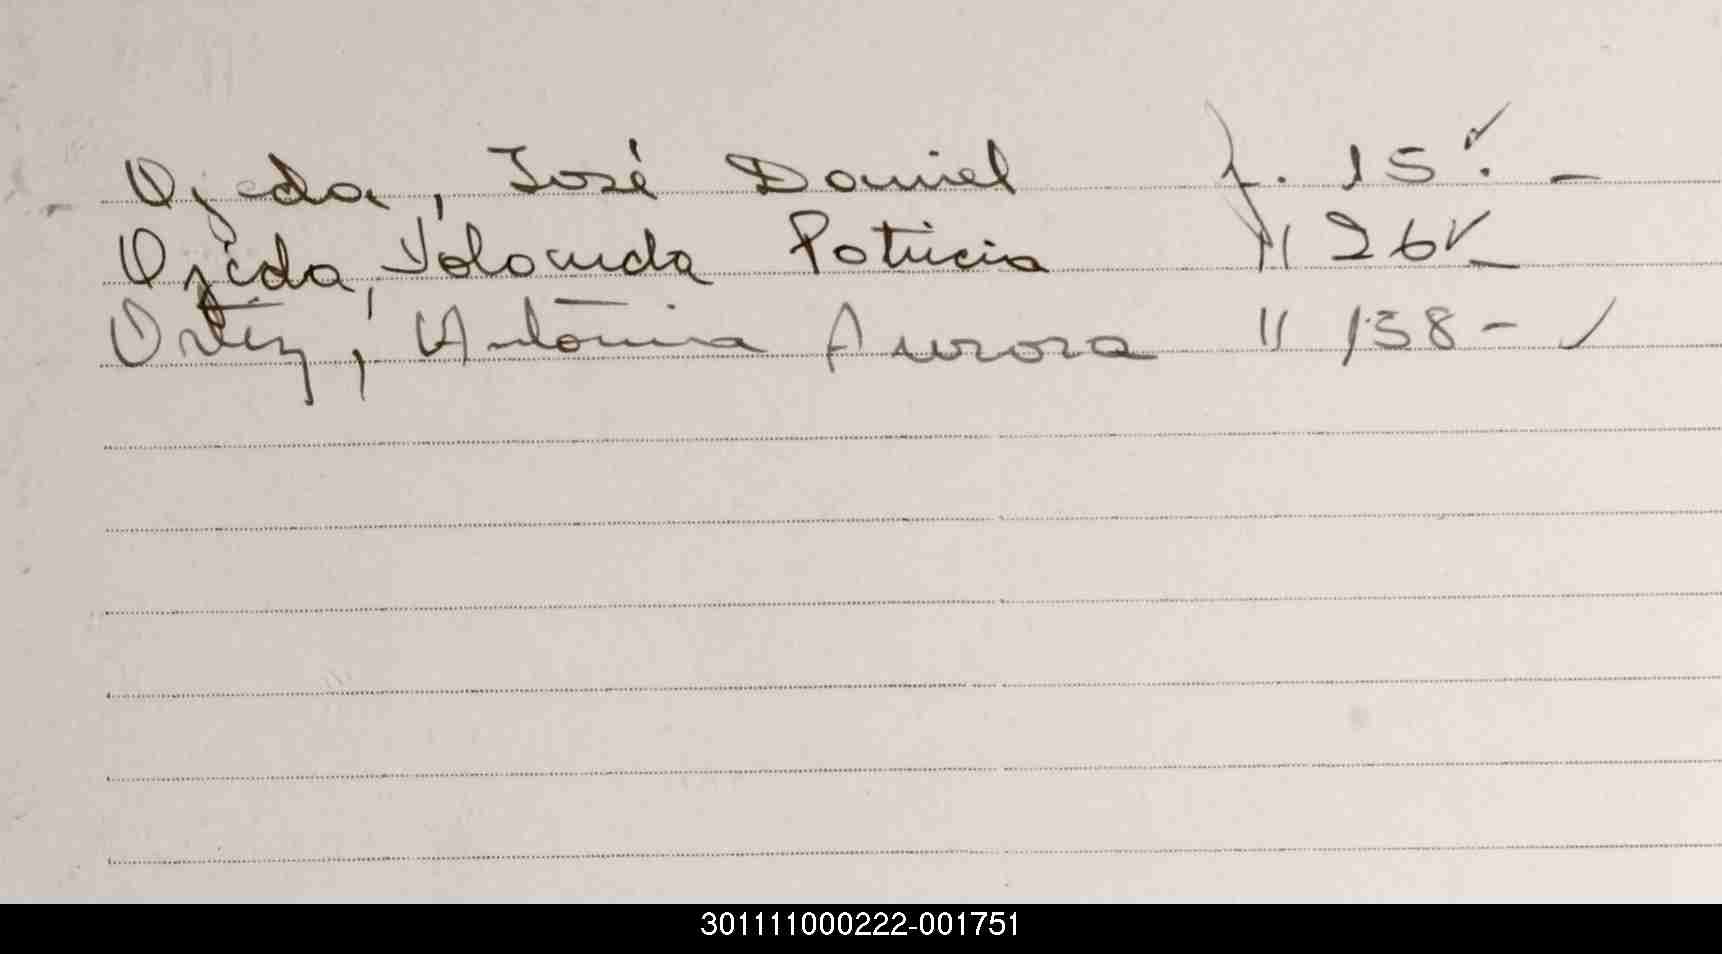 Ojeda, José Daniel f. 15 ✓. —
Ojeda, Yolanda Patricia " 26 ✓ —
Ortíz, Antonia Aurora " 158 - ✓
301111000222-001751